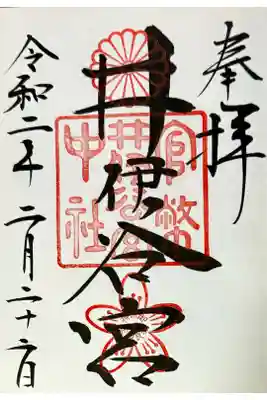 奉拝
井伊谷宮
官幣
井伊谷宮
中社
令和二年二月二十六日